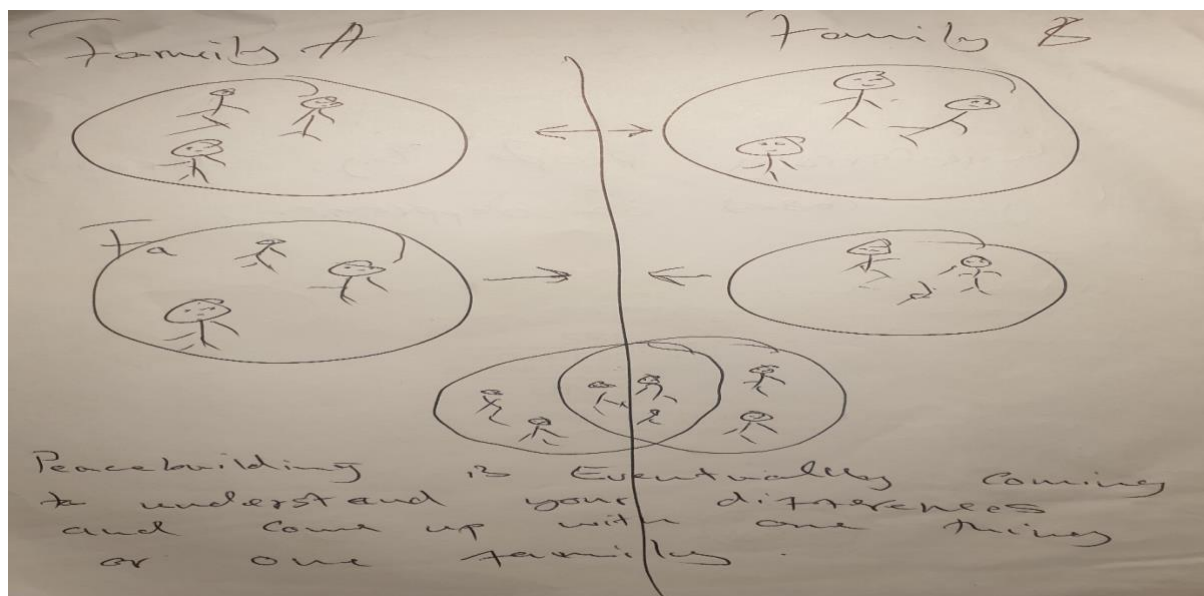 Family A
Family B
Fa
Peacebuilding is Eventually coming
to understand your differences
and come up with one thing
or one family.